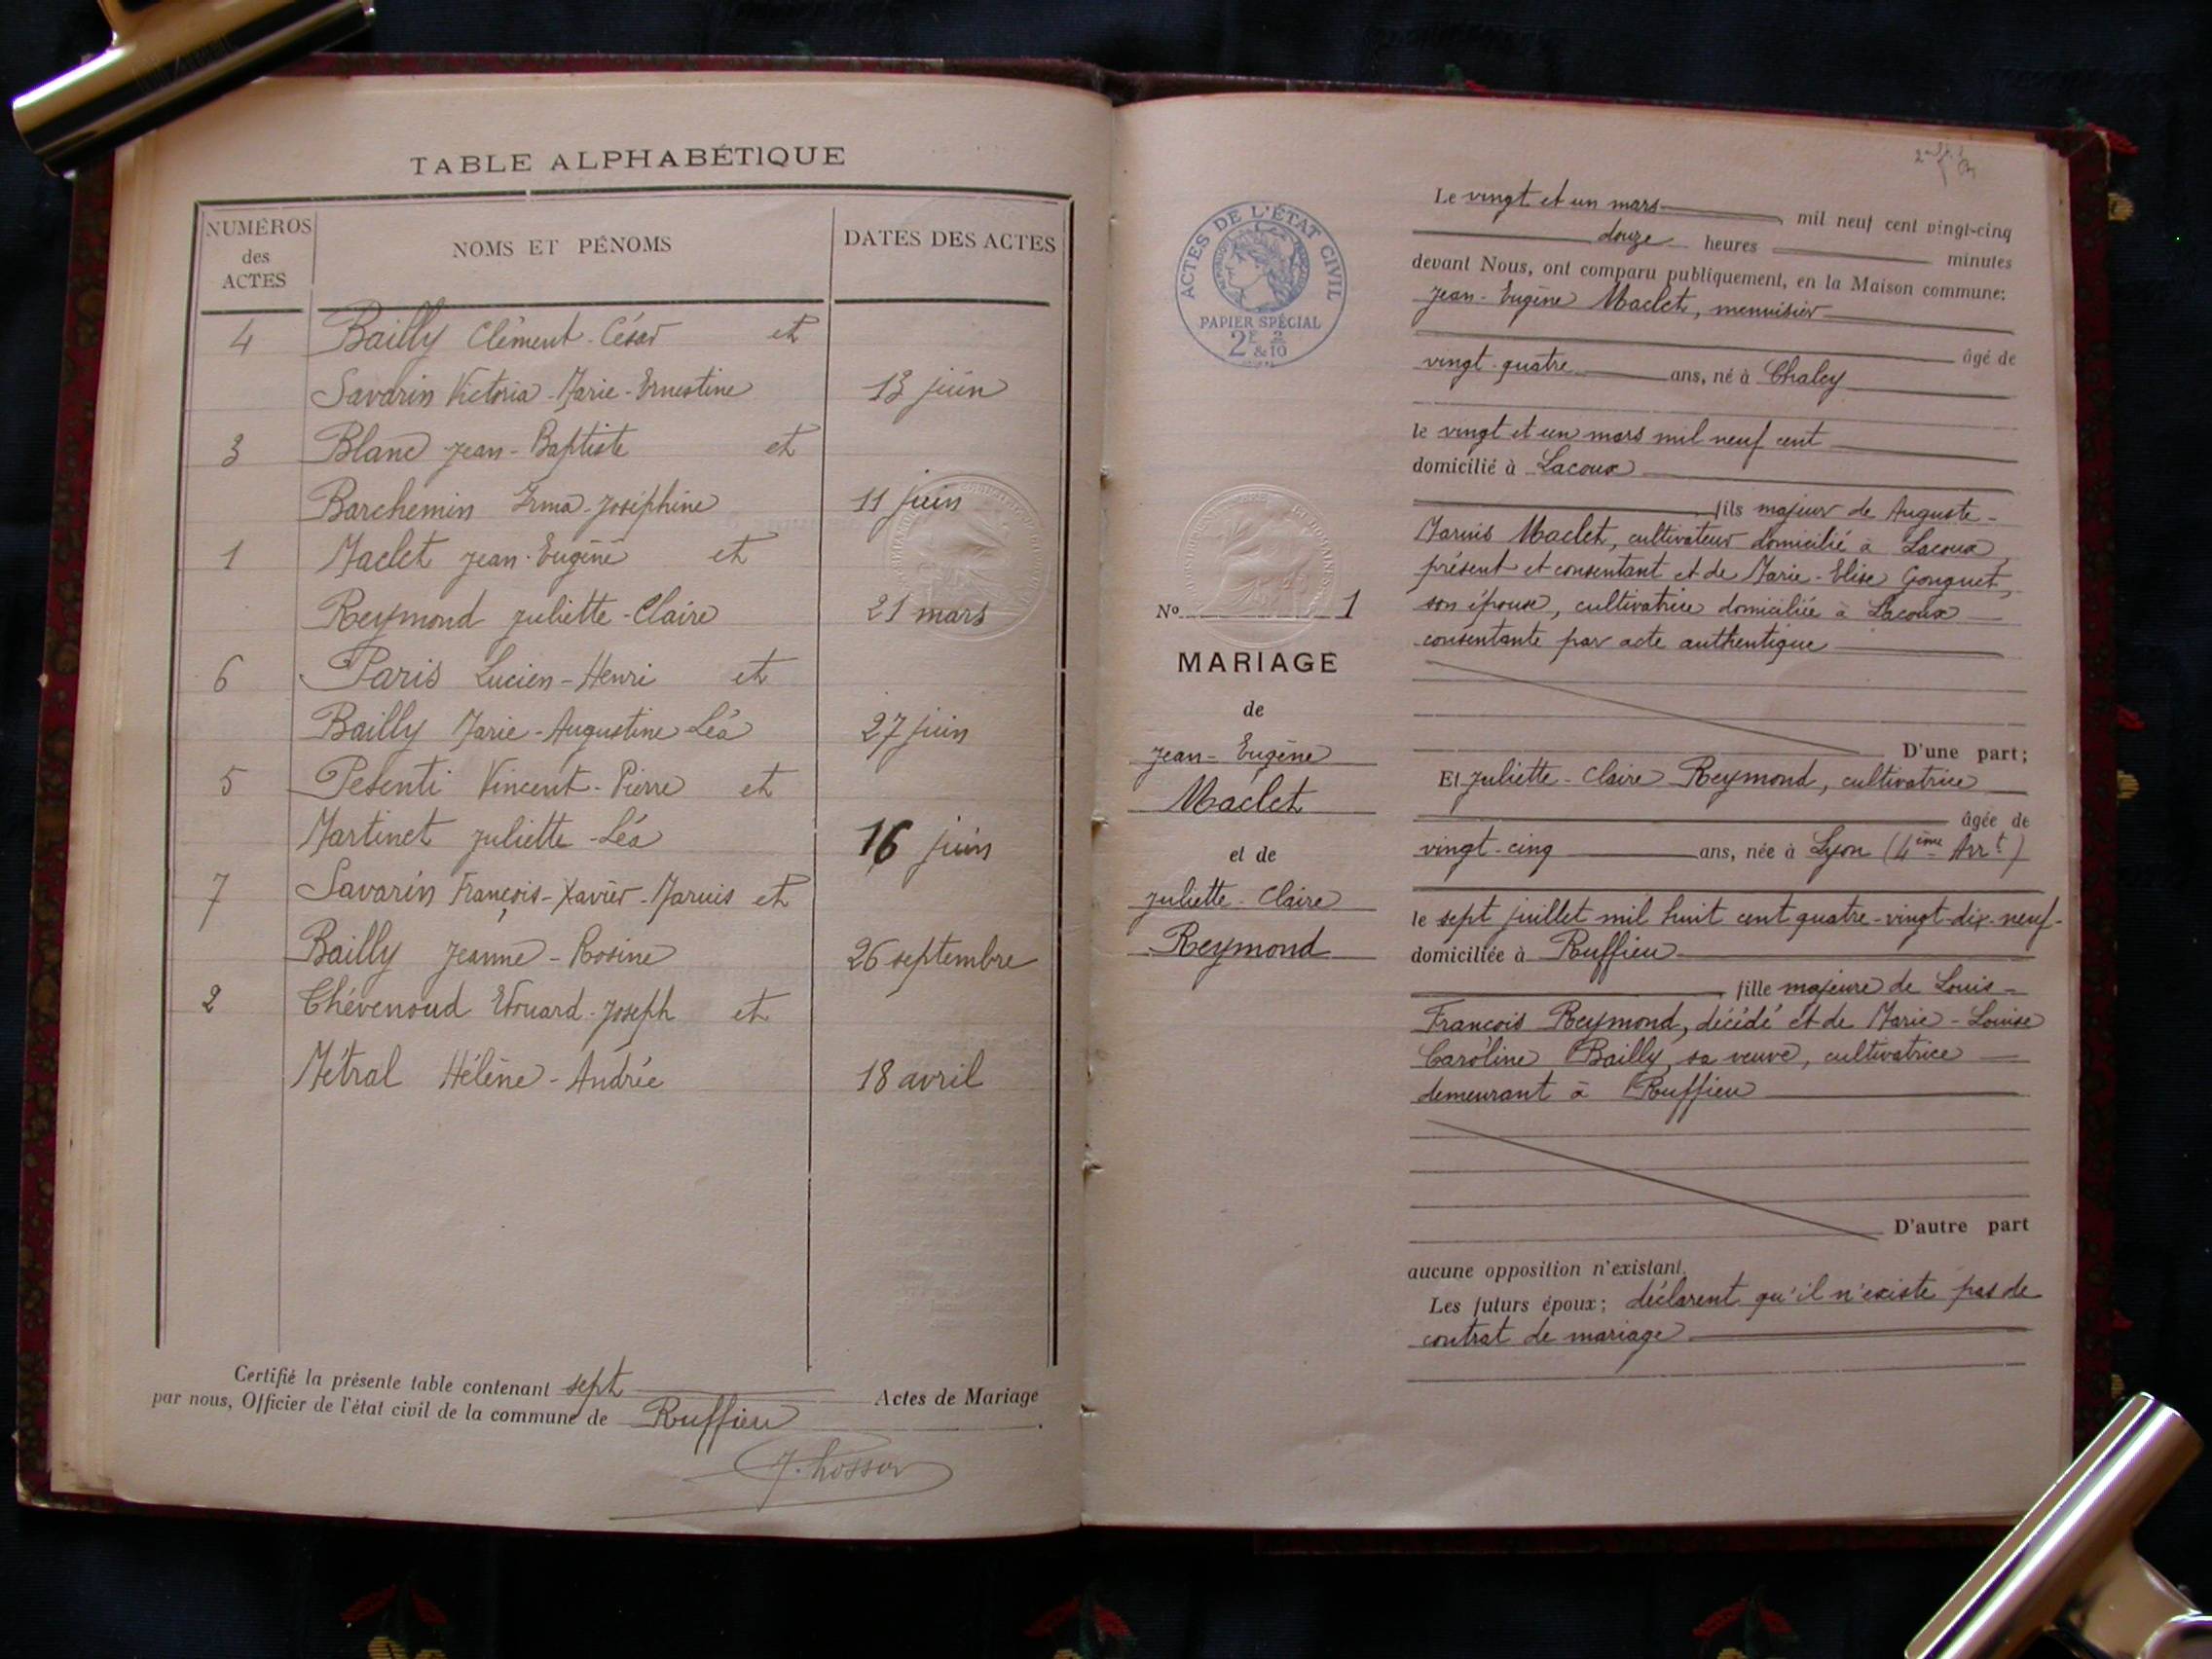 TABLE ALPHABÉTIQUE
NUMÉROS des ACTES
NOMS ET PÉNOMS
DATES DES ACTES
4 Bailly Clément-César et
Savarin Victoria-Marie-Ernestine 13 juin
3 Blanc Jean-Baptiste et
Barchemin Irma-Joséphine 11 juin
1 Maclet Jean-Eugène et
Reymond Juliette-Claire 21 mars
6 Paris Lucien-Henri et
Bailly Marie-Augustine-Léa 27 juin
5 Pesenti Vincent-Pierre et
Martinet Juliette-Léa 16 juin
7 Savarin François-Xavier-Marius et
Bailly Jeanne-Rosine 26 septembre
2 Thévenoud Edouard-Joseph et
Métral Hélène-Andrée 18 avril
Certifié la présente table contenant sept Actes de Mariage
par nous, Officier de l'état civil de la commune de Ruffieu.
ACTES DE L'ÉTAT CIVIL
PAPIER SPÉCIAL
2F & 2/10
No 1
MARIAGE
de
Jean-Eugène
Maclet
et de
Juliette-Claire
Reymond
Le vingt et un mars, mil neuf cent vingt-cinq
douze heures minutes
devant Nous, ont comparu publiquement, en la Maison commune:
Jean-Eugène Maclet, menuisier
âgé de
vingt-quatre ans, né à Chaley
le vingt et un mars mil neuf cent
domicilié à Lacoux
, fils majeur de Auguste-
Marius Maclet, cultivateur domicilié à Lacoux,
présent et consentant et de Marie-Elise Gonguet,
son épouse, cultivatrice domiciliée à Lacoux
consentante par acte authentique
D'une part;
Et Juliette-Claire Reymond, cultivatrice
âgée de
vingt-cinq ans, née à Lyon (4ème Arrt)
le sept juillet mil huit cent quatre-vingt-dix-neuf-
domiciliée à Ruffieu
, fille majeure de Louis-
François Reymond, décédé et de Marie-Louise
Caroline Bailly, sa veuve, cultivatrice
demeurant à Ruffieu
D'autre part
aucune opposition n'existant.
Les futurs époux; déclarent qu'il n'existe pas de
contrat de mariage